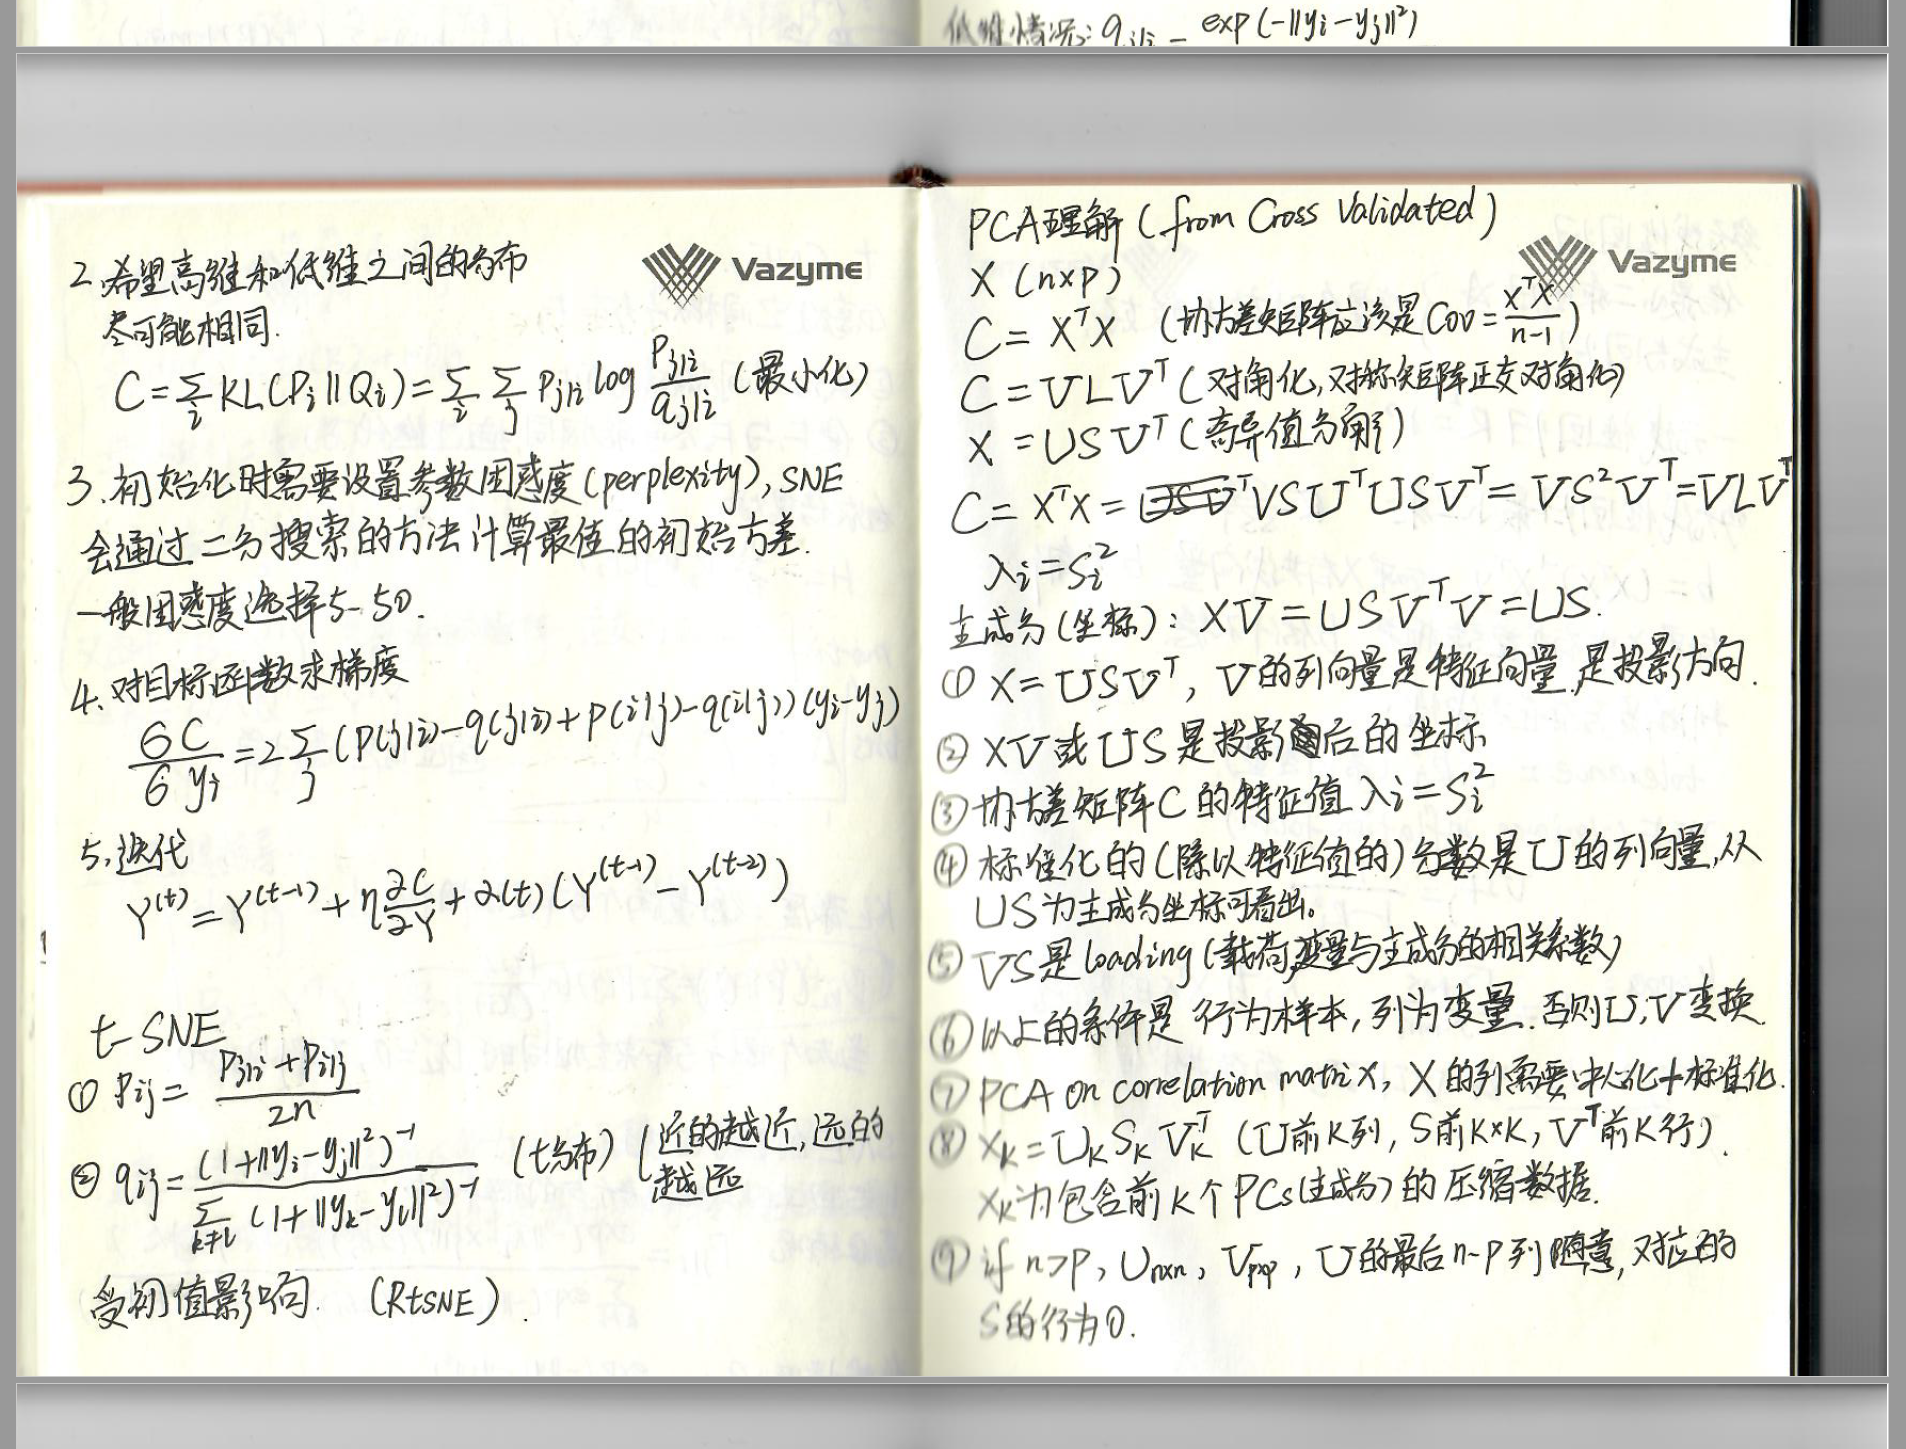 低维情况: q_{j|i} = exp(-||y_i-y_j||²)
Vazyme
2. 希望高维和低维之间的分布
尽可能相同.
C=∑_i KL(P_i||Q_i)=∑_i ∑_j P_{j|i} log P_{j|i}/q_{j|i} (最小化)
3. 初始化时需要设置参数困惑度(perplexity), SNE
会通过二分搜索的方法计算最值的初始方差.
一般困惑度选择5-50.
4. 对目标函数求梯度
δC/δy_i=2∑_j(P(j|i)-q(j|i)+P(i|j)-q(i|j))(y_i-y_j)
5. 迭代
Y^(t)=Y^(t-1)+η∂C/∂Y+α(t)(Y^(t-1)-Y^(t-2))
t-SNE
① P_ij=(P_{j|i}+P_{i|j})/2n
② q_ij=(1+||y_i-y_j||²)^-1/∑_{k≠l}(1+||y_k-y_l||²)^-1 (t分布) (近的越近, 远的
越远
受初值影响. (RtSNE).
PCA理解(from Cross Validated)
Vazyme
X (n×p)
C=X^T X (协方差矩阵应该是Cov=X^T X/n-1)
C=VLV^T(对角化, 对称矩阵正交对角化)
X=USV^T(奇异值分解)
C=X^T X=VSU^T USV^T=VS²V^T=VLV^T
λ_i=S_i²
主成分(坐标): XV=USV^T V=US.
① X=USV^T, V的列向量是特征向量, 是投影方向.
② XV或US是投影后的坐标
③ 协方差矩阵C的特征值λ_i=S_i²
④ 标准化的(除以特征值的)分数是U的列向量, 从
US为主成分坐标可看出。
⑤ VS是loading(载荷, 变量与主成分的相关系数)
⑥ 以上的条件是 行为样本, 列为变量. 否则U, V变换.
⑦ PCA on correlation matrix, X的列需要中心化+标准化.
⑧ X_K=U_K S_K V_K^T (U前K列, S前K×K, V^T前K行).
X_K为包含前K个PCs(主成分)的压缩数据.
⑨ if n>p, U_{n×n}, V_{p×p}, U的最后n-p列随意, 对应的
S的行为0.